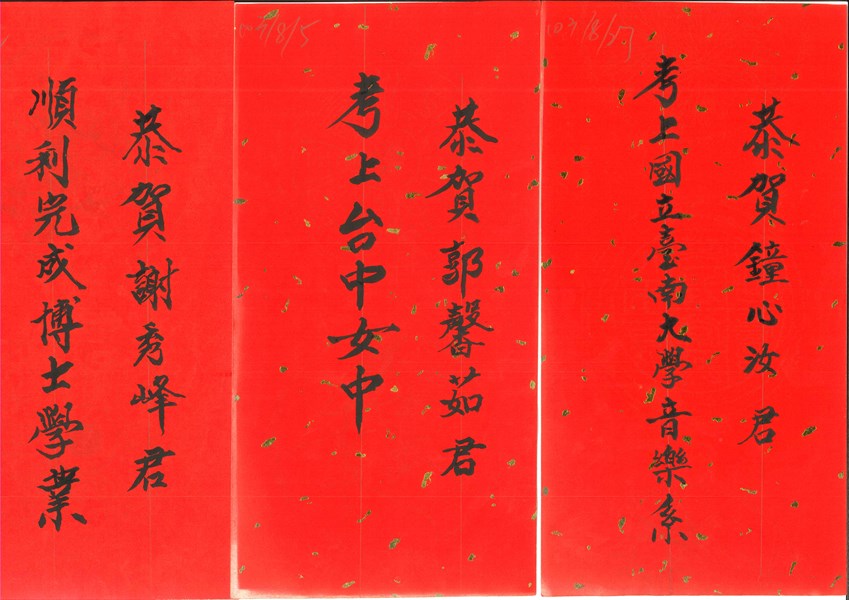 恭賀鐘心汝君
考上國立臺南大學音樂系
恭賀郭馨茹君
考上台中女中
恭賀謝秀峰君
順利完成博士學業
103/8/5